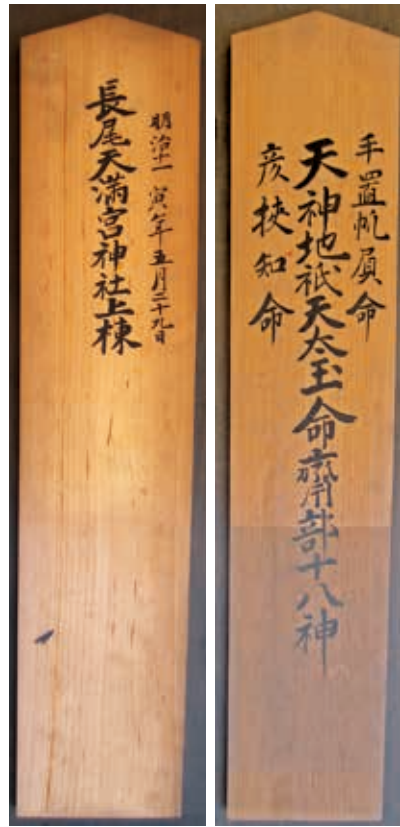 明治十一 寅年 五月二十九日
長尾天満宮神社上棟
手置帆負命
天神地祇天太玉命齋部十八神
彦狭知命